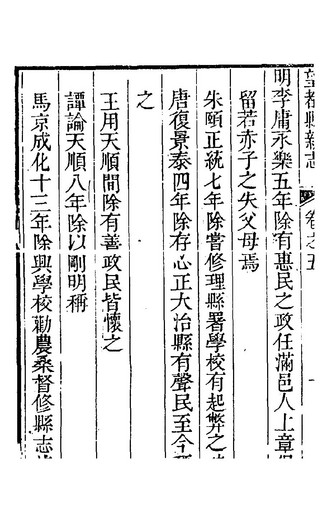 望都縣新志 卷之五
明李庸永樂五年除有惠民之政任滿邑人上章保
留若赤子之失父母焉
朱頤正統七年除嘗修理縣署學校有起弊之
唐復景泰四年除存心正大治縣有聲民至今
之
王用天順間除有善政民皆懷之
譚論天順八年除以剛明稱
馬京成化十三年除興學校勸農桑督修縣志